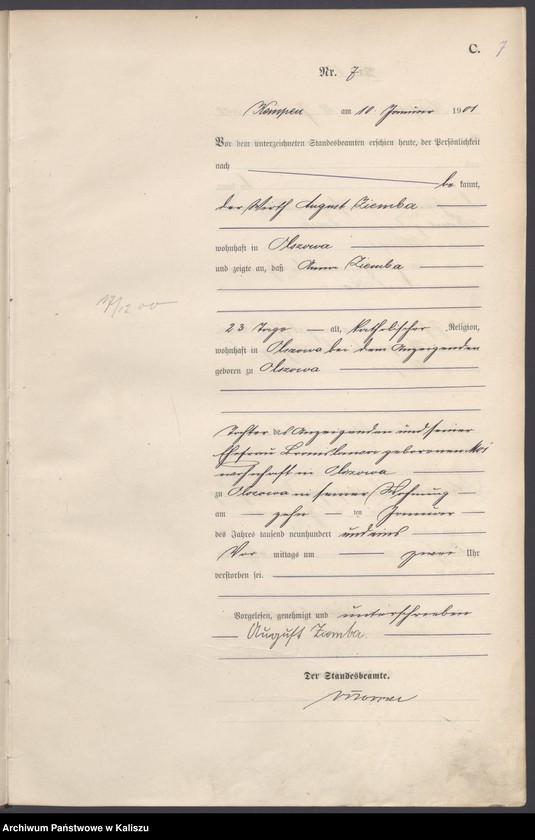 C. 7
Nr. 7
Kempen am 10. Januar 1901
Vor dem unterzeichneten Standesbeamten erschien heute, der Persönlichkeit
nach
be kannt,
der Wirth August Ziemba
wohnhaft in Olszowa
und zeigte an, daß Anna Ziemba
17/12 00
23 Tage alt, katholischer Religion,
wohnhaft in Olszowa bei dem Anzeigenden
geboren zu Olszowa
Tochter des Anzeigenden und seiner
Ehefrau Bronislawa geborenen
wohnhaft in Olszowa
zu Olszowa in seiner Wohnung
am zehn ten Januar
des Jahres tausend neunhundert und eins
Vor mittags um zwei Uhr
verstorben sei.
Vorgelesen, genehmigt und unterschrieben
August Ziomba.
Der Standesbeamte.
Archiwum Państwowe w Kaliszu